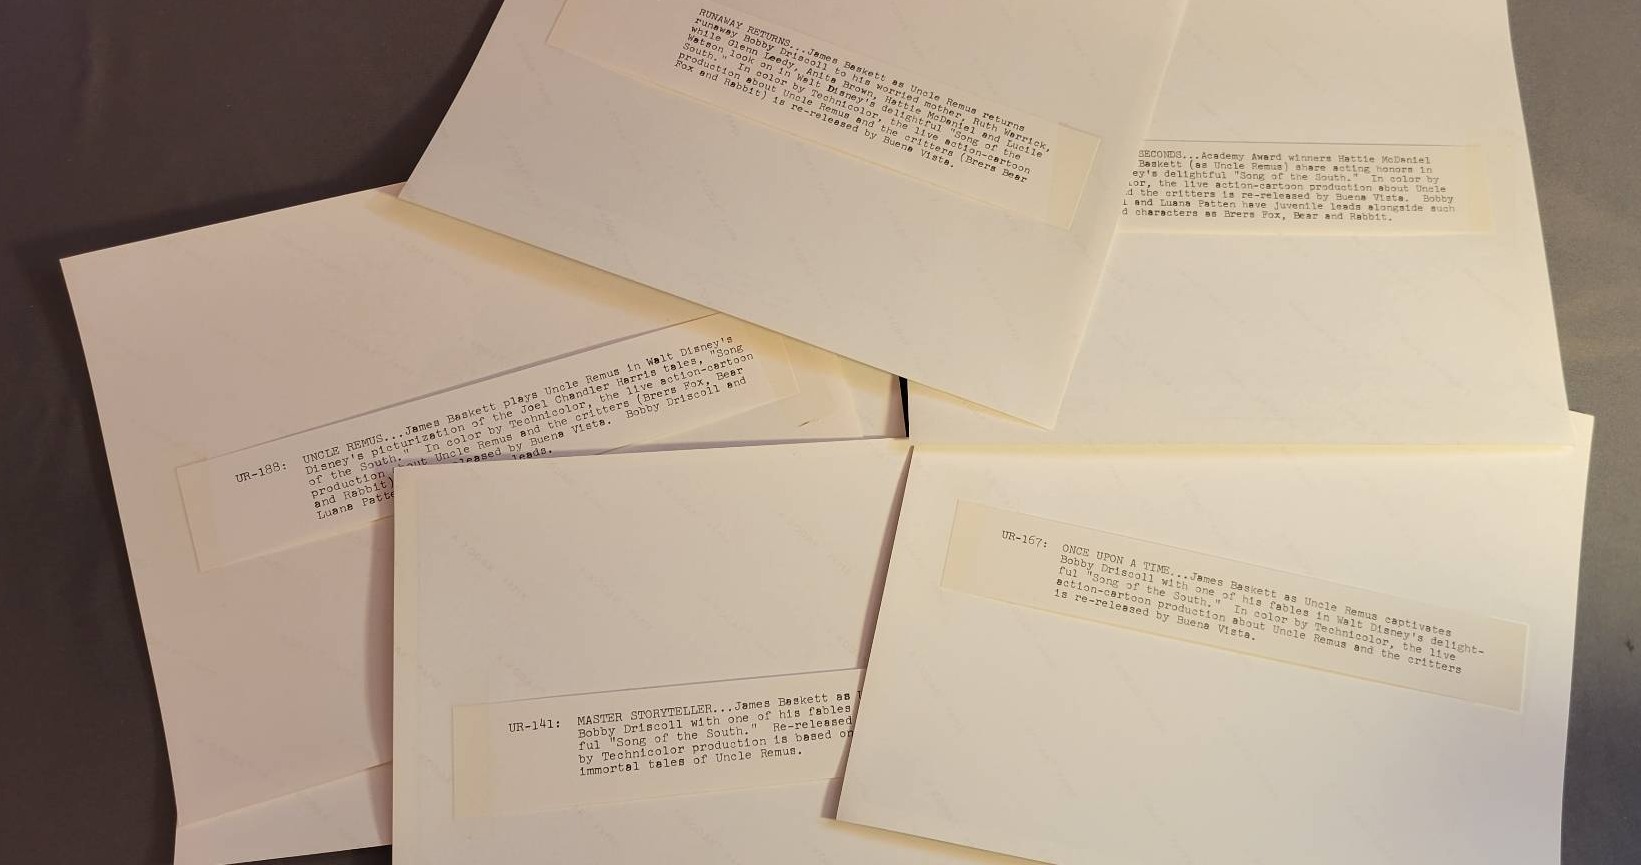 RUNAWAY RETURNS...James Baskett as Uncle Remus returns
runaway Bobby Driscoll to his worried mother, Ruth Warrick,
while Glenn Leedy, Anita Brown, Hattie McDaniel and Lucile
Watson look on in Walt Disney's delightful "Song of the
South." In color by Technicolor, the live action-cartoon
production about Uncle Remus and the critters (Brers Bear
Fox and Rabbit) is re-released by Buena Vista.
SECONDS...Academy Award winners Hattie McDaniel
Baskett (as Uncle Remus) share acting honors in
ey's delightful "Song of the South." In color by
or, the live action-cartoon production about Uncle
d the critters is re-released by Buena Vista. Bobby
l and Luana Patten have juvenile leads alongside such
d characters as Brers Fox, Bear and Rabbit.
UR-188: UNCLE REMUS...James Baskett plays Uncle Remus in Walt Disney's
Disney's picturization of the Joel Chandler Harris tales, "Song
of the South." In color by Technicolor, the live action-cartoon
production about Uncle Remus and the critters (Brers Fox, Bear
and Rabbit) released by Buena Vista. Bobby Driscoll and
Luana Patte leads.
UR-141: MASTER STORYTELLER...James Baskett as
Bobby Driscoll with one of his fables
ful "Song of the South." Re-released
by Technicolor production is based on
immortal tales of Uncle Remus.
UR-167: ONCE UPON A TIME...James Baskett as Uncle Remus captivates
Bobby Driscoll with one of his fables in Walt Disney's delight-
ful "Song of the South." In color by Technicolor, the live
action-cartoon production about Uncle Remus and the critters
is re-released by Buena Vista.